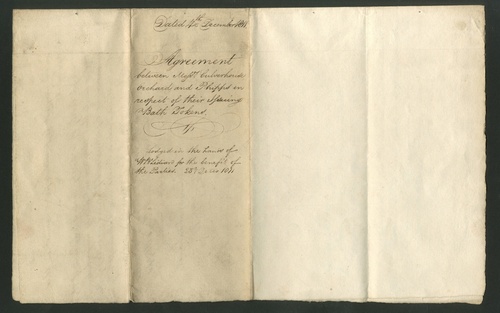 Dated 4th December 1811
Agreement
between Messrs Culverhouse
Orchard and Phipps in
respect of their Issuing
Bath Tokens
lodged in the hands of
for the benefit of
the Parties. 23d Decr 1811